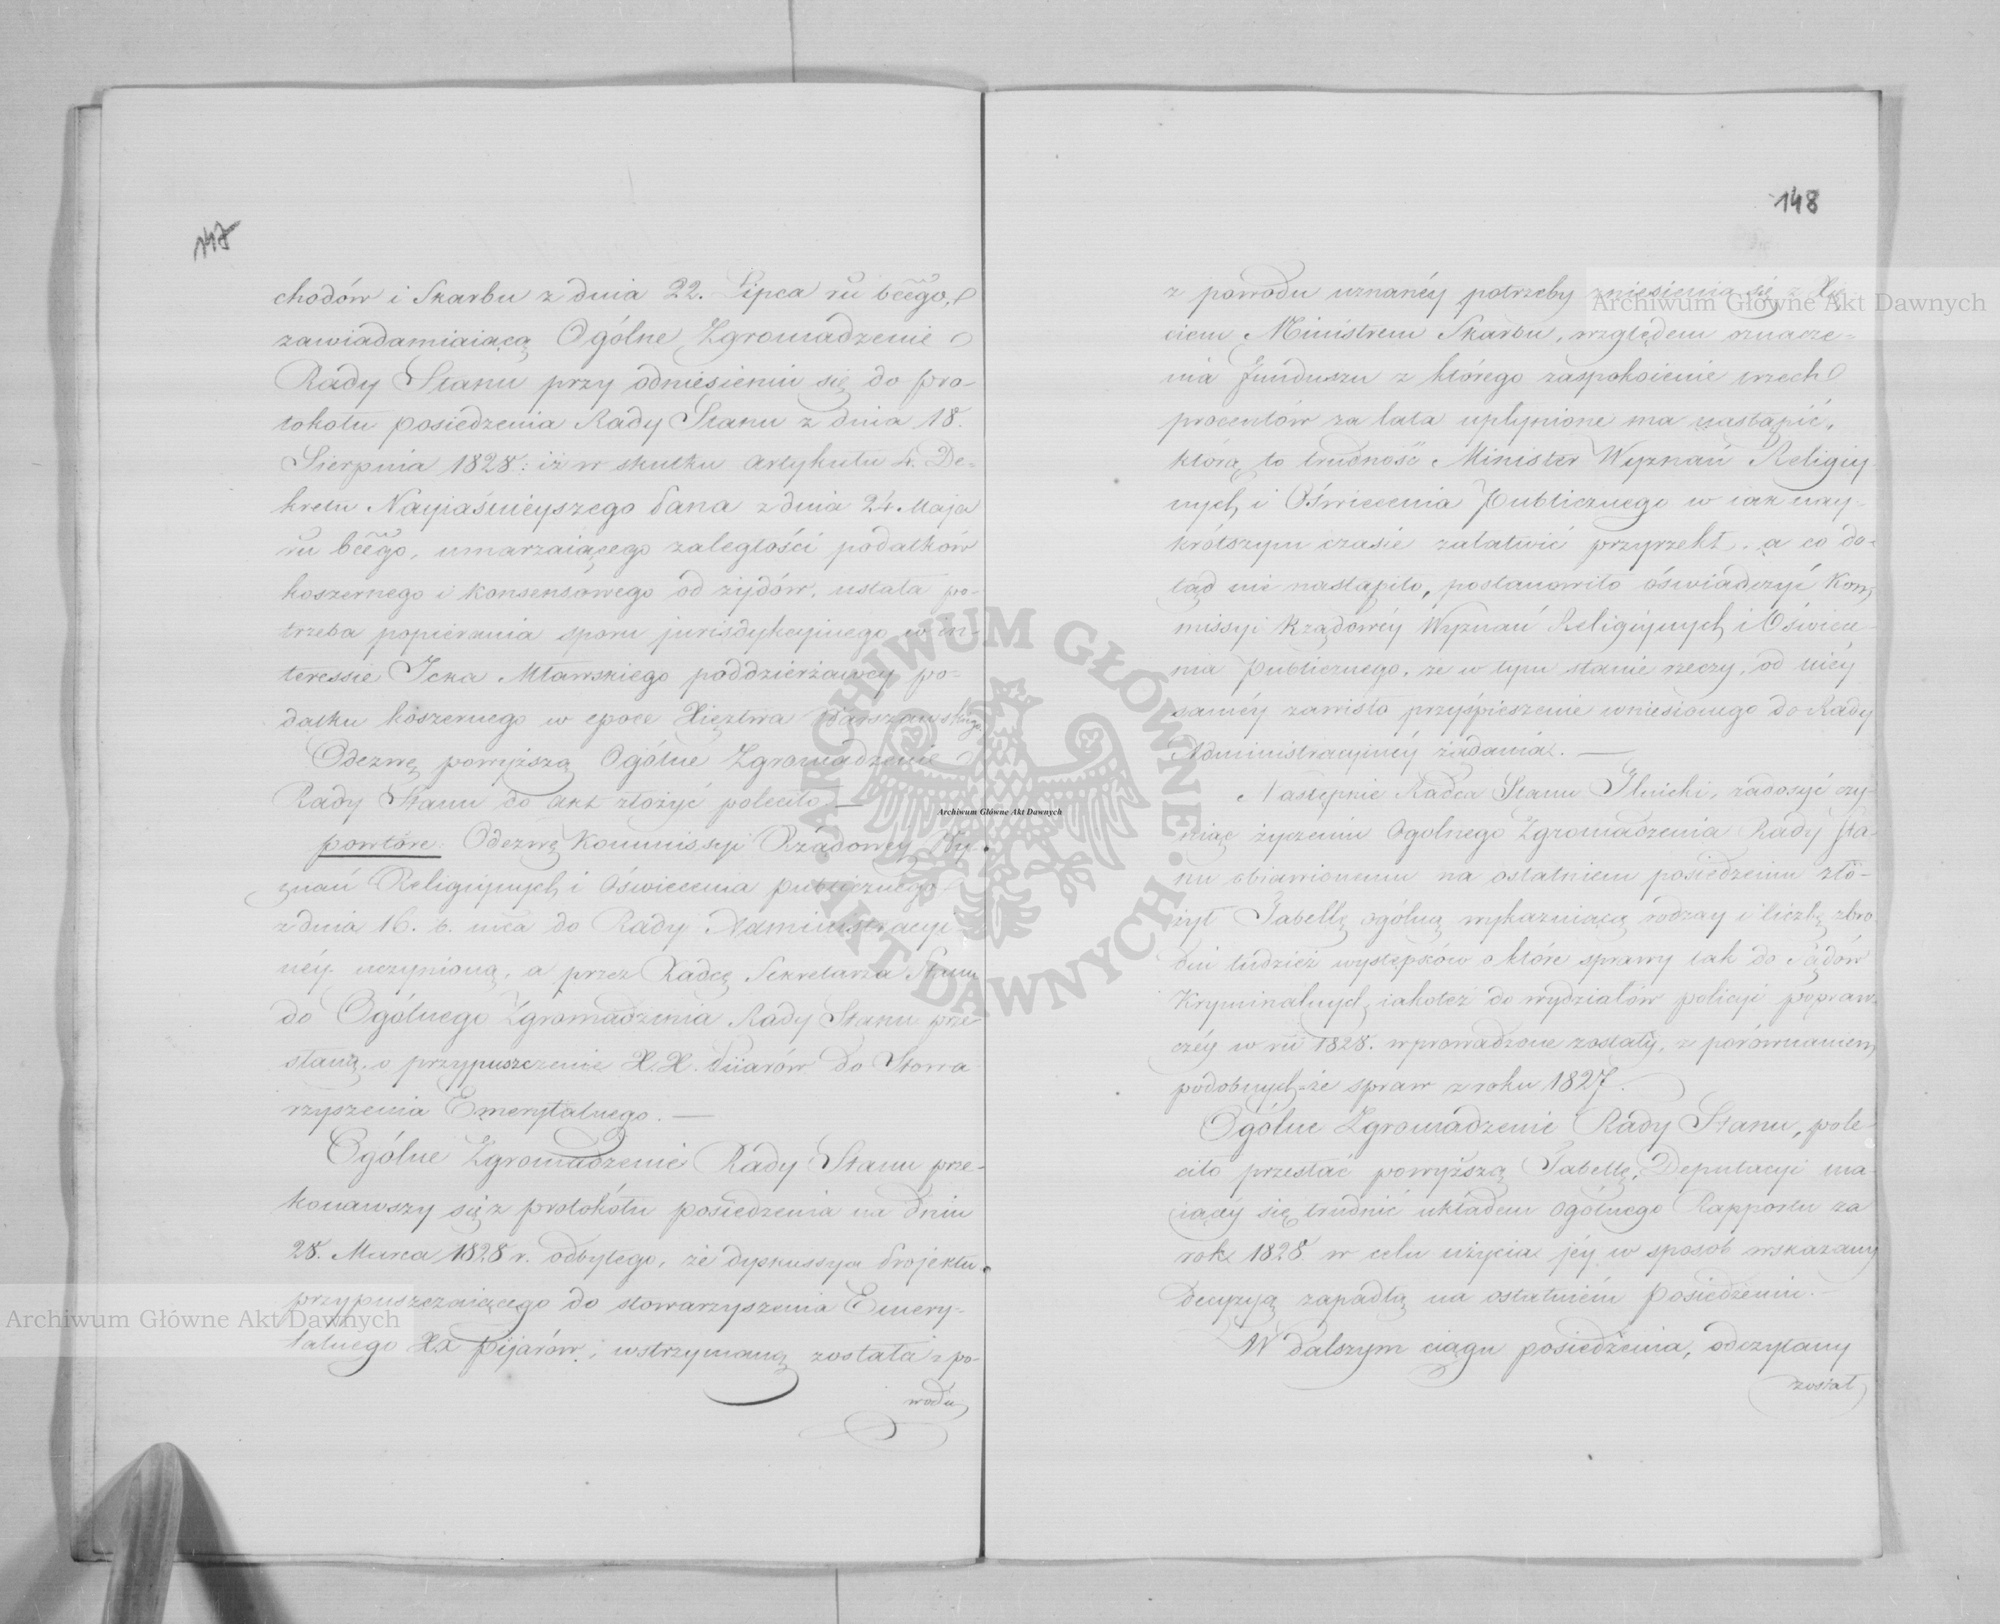 147
chodów i Skarbu z dnia 22. Lipca ru bcego,
zawiadamiaiącą Ogólne Zgromadzenie
Rady Stanu przy odniesieniu się do pro-
tokołu posiedzenia Rady Stanu z dnia 18.
Sierpnia 1828: iż w skutku artykułu 4. De-
kretu Nayiaśnieyszego Pana z dnia 24. Maja
ru bcego, umarzaiącego zaległości podatków
koszernego i konsensowego od żydów, ustała po-
trzeba popierania sporu jurisdykcyinego w in-
teressie Icka Mławskiego poddzierżawcy po-
datku koszernego w epoce Xięztwa Warszawskiego
Odezwę powyższą Ogólne Zgromadzenie
Rady Stanu do akt złożyć poleciło.—
powtóre: Odezwę Kommissyi Rządowey Wy-
znań Religiynych i Oświecenia publicznego
z dnia 16. b. mca do Rady Administracyi-
néy uczynioną, a przez Radcę Sekretarza Stanu
do Ogólnego Zgromadzenia Rady Stanu prze-
słaną, o przypuszczenie X.X. Piiarów do Stowa-
rzyszenia Emerytalnego.—
Ogólne Zgromadzenie Rady Stanu prze-
konawszy się z protokółu posiedzenia na dniu
28. Marca 1828 r. odbytego, że dyskussya Projektu
przypuszczaiącego do stowarzyszenia Emery-
talnego XX Pijarów, wstrzymaną została z po-
wodu
148
z powodu uznanéy potrzeby zniesienia się z Xię-
ciem Ministrem Skarbu, względem oznacze-
nia funduszu z którego zaspokoienie trzech
procentów za lata upłynione ma nastąpić,
którą to trudność Minister Wyznań Religiy-
nych i Oświecenia Publicznego w iak nay-
krótszym czasie załatwić przyrzekł, a co do-
tąd nie nastąpiło, postanowiło oświadczyć Kom-
missyi Rządowéy Wyznań Religiynych i Oświece-
nia Publicznego, że w tym stanie rzeczy, od niéy
saméy zawisło przyśpieszenie wniesionego do Rady
Administracyinéy żądania.—
Następnie Radca Stanu Gliński, zadosyć czy-
niąc życzeniu Ogolnego Zgromadzenia Rady Sta-
nu obiawionemu na ostatniem posiedzeniu zło-
żył Tabellę ogólną wykazuiącą rodzay i liczbę zbro-
dni tudzież występków o które sprawy tak do Sądów
Kryminalnych iakoteż do wydziałów policyi popraw-
czéy w ru 1828. wprowadzone zostały, z porównaniem
podobnych-że spraw z roku 1827.
Ogólne Zgromadzenie Rady Stanu, pole-
ciło przesłać powyższą Tabellę, Deputacyi ma-
iącéy się trudnić układem ogólnego Rapportu za
rok 1828 w celu użycia jéy w sposób wskazany
Decyzyą zapadłą na ostatniém posiedzeniu.—
W dalszym ciągu posiedzenia, odczytany
został
Archiwum Główne Akt Dawnych
Archiwum Główne Akt Dawnych
Archiwum Główne Akt Dawnych
ARCHIWUM GŁÓWNE AKT DAWNYCH